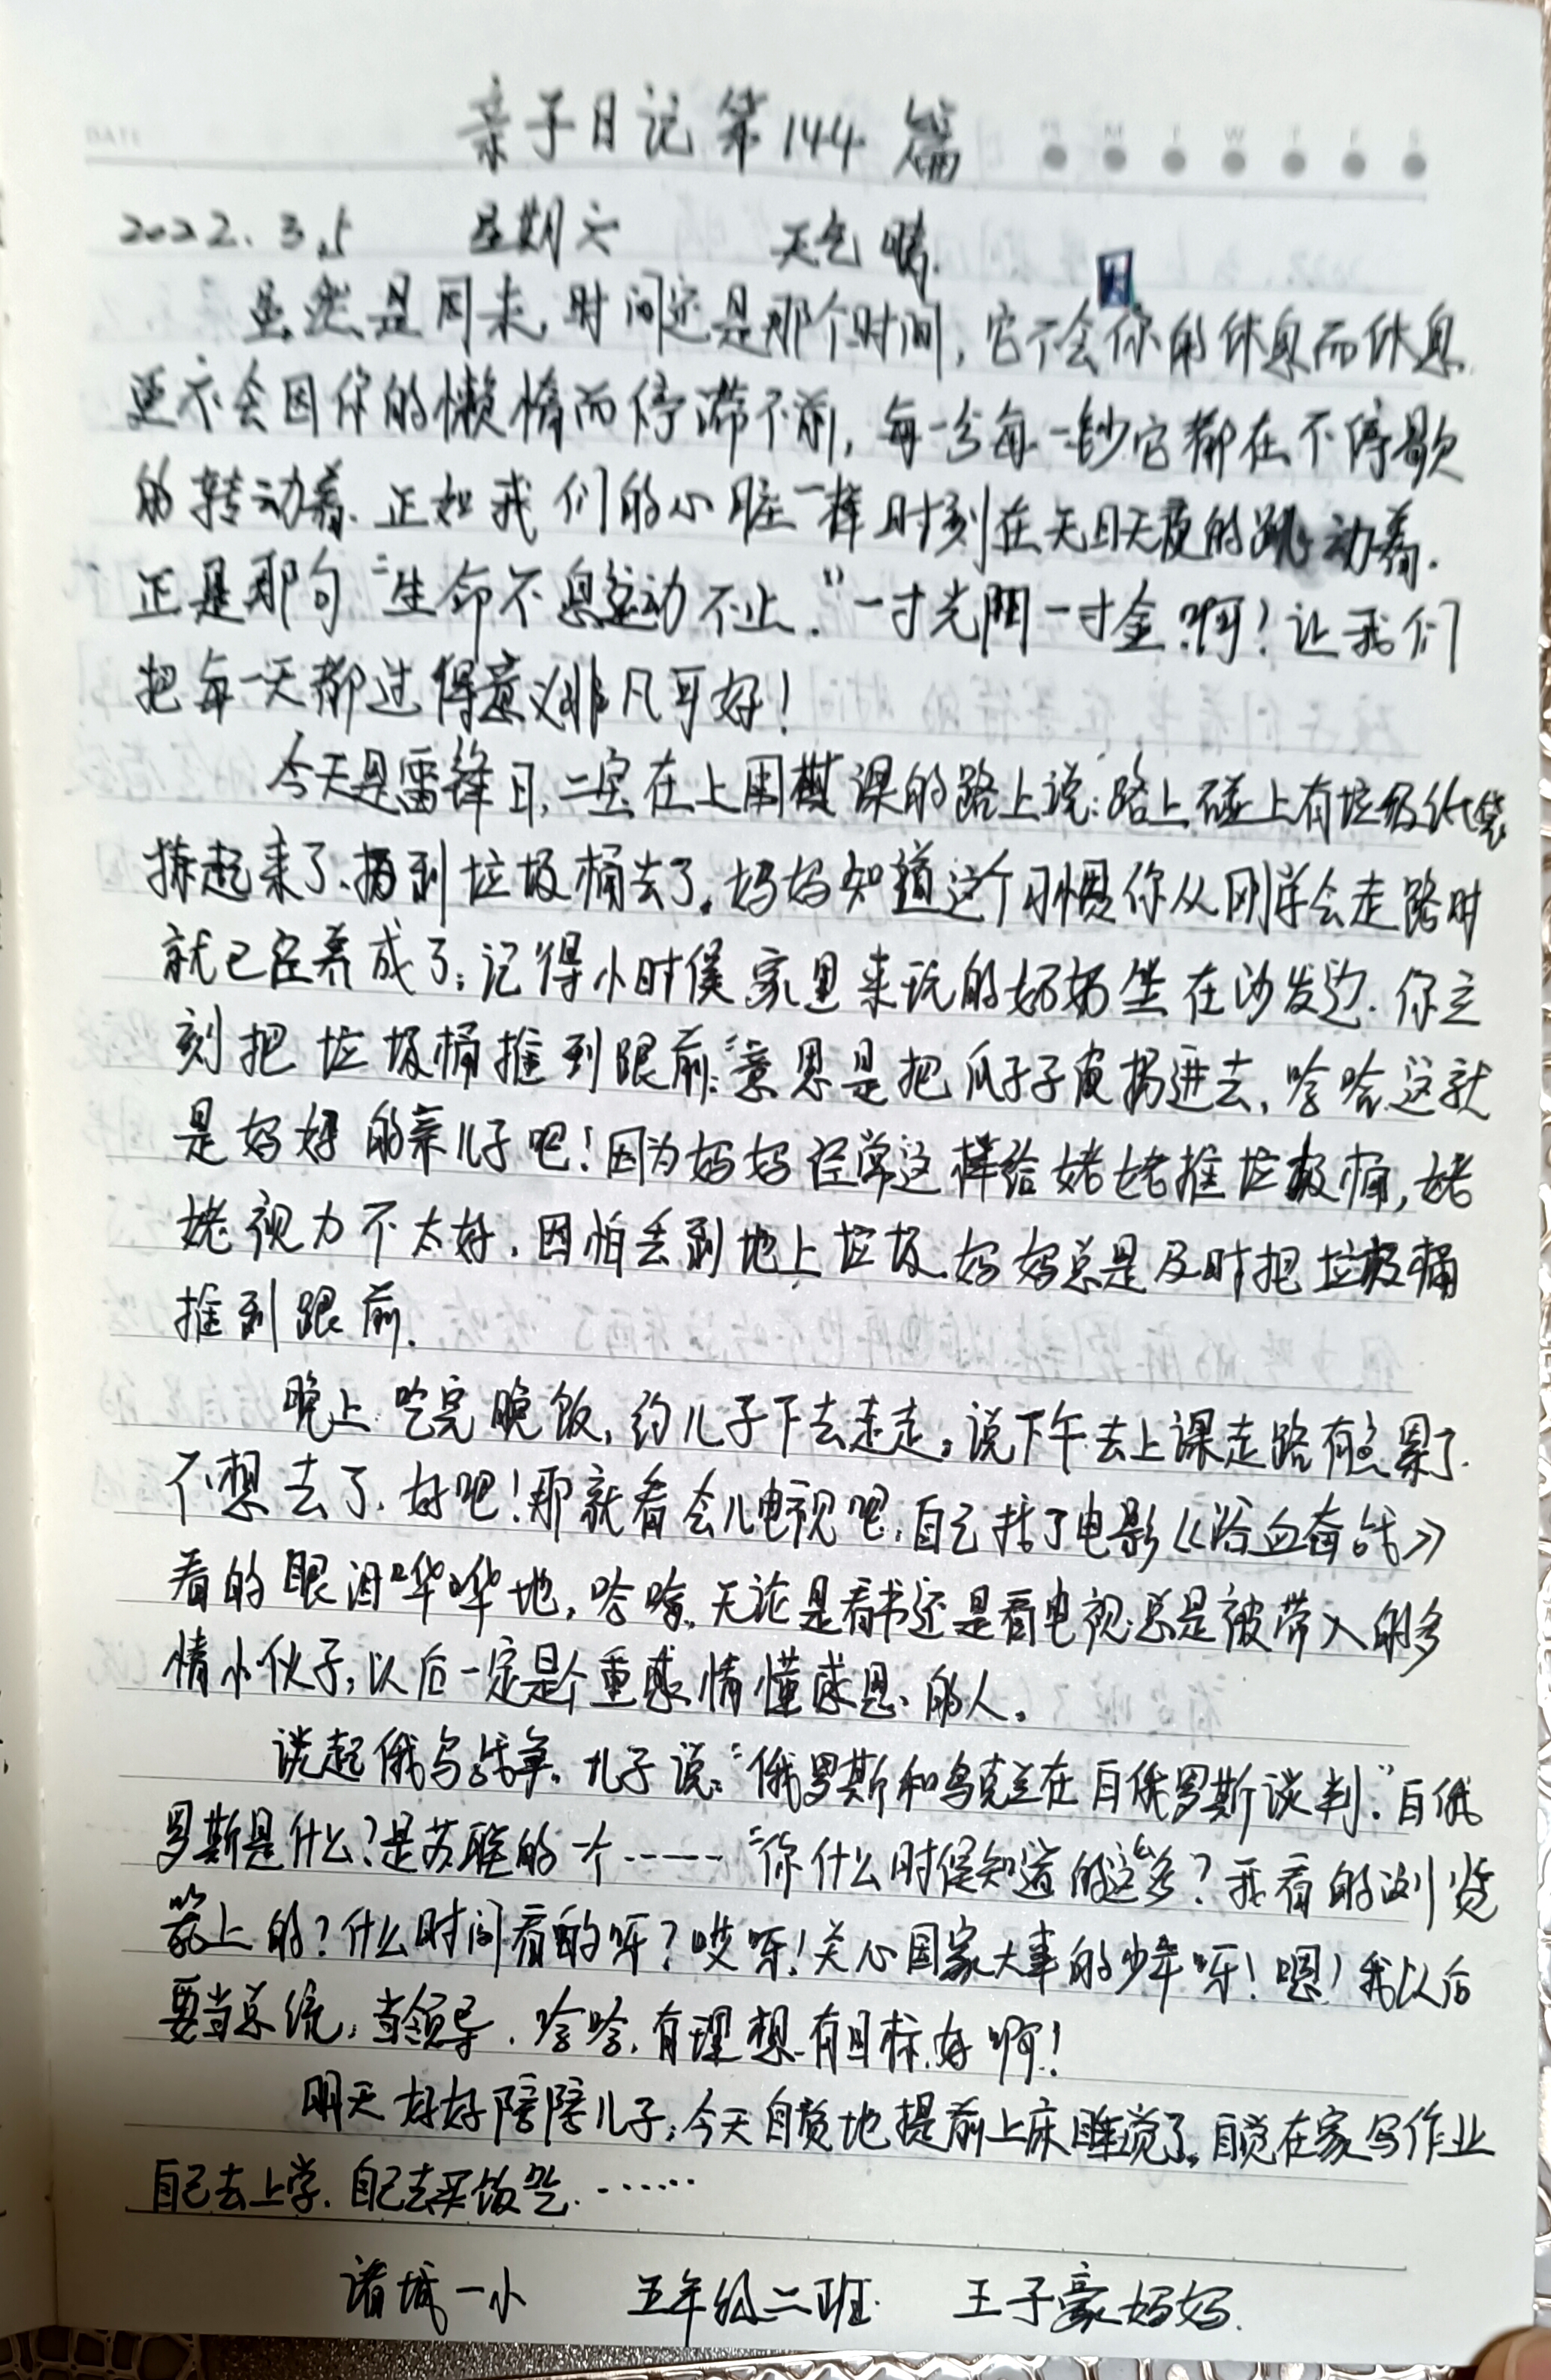 亲子日记第144篇
2022.3.5 星期六 天气晴.
虽然是周末,时间还是那个时间,它不会因你的休息而休息
更不会因你的懒惰而停滞不前,每一分每一钞它都在不停歇
的转动着.正如我们的心脏一样时刻在无日无夜的跳动着.
正是那句“生命不息运动不止.”一寸光阴一寸金啊!让我们
把每一天都过得意义非凡才好!
今天是雷锋日,二宝在上围棋课的路上说:路上碰上有垃圾纸袋
拣起来了、扔到垃圾桶去了。妈妈知道这个习惯你从刚学会走路时
就已经养成了;记得小时侯家里来玩的奶奶坐在沙发边.你立
刻把垃圾桶推到跟前:意思是把瓜子子皮扔进去,哈哈这就
是妈妈的亲儿子吧!因为妈妈经常这样给姥姥推垃圾桶,姥
姥视力不太好.因怕丢到地上垃圾.妈妈总是及时把垃圾桶
推到跟前.
晚上吃完晚饭,约儿子下去走走。说下午去上课走路有点累了.
不想去了.好吧!那就看会儿电视吧.自己找了电影《浴血奋战》
看的眼泪哗哗地,哈哈.无论是看书还是看电视总是被带入的多
情小伙子,以后一定是个重感情懂感恩的人。
谈起俄乌战争.儿子说:“俄罗斯和乌克兰在白俄罗斯谈判.”白俄
罗斯是什么?是苏联的一个-----“你什么时侯知道的这多?我看的浏览
器上的?什么时间看的呀?哎呀!关心国家大事的少年呀!嗯!我以后
要当总统,当领导.哈哈,有理想.有目标.好啊!
明天好好陪陪儿子;今天自觉地提前上床睡觉了。自觉在家写作业
自己去上学.自己去买饭吃.……
诸城一小 五年级二班 王子豪妈妈.